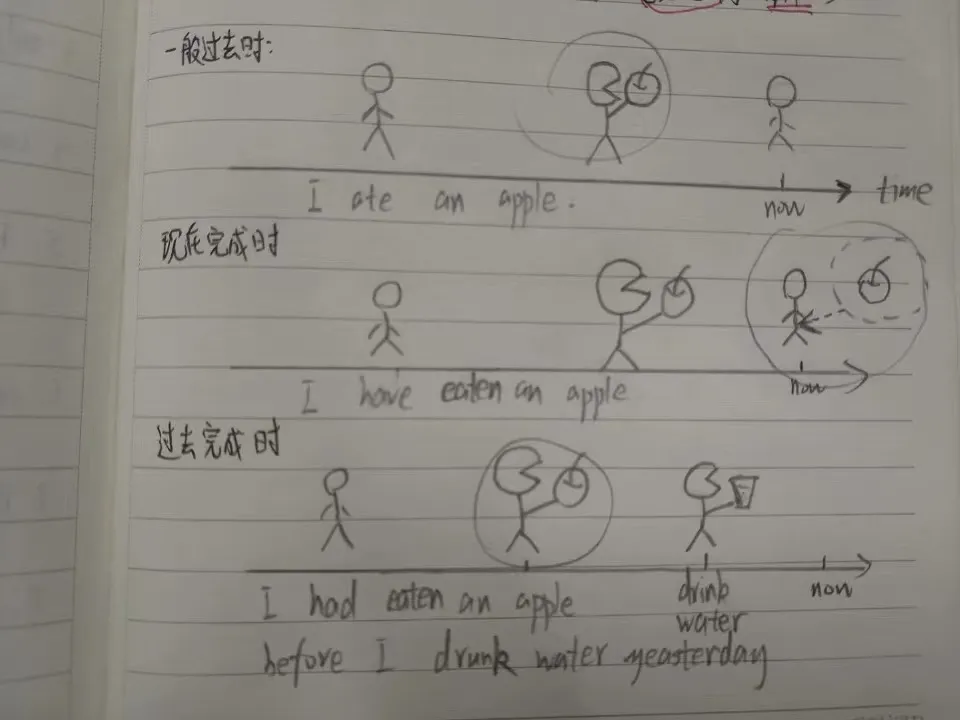 一般过去时:
I ate an apple.
now
time
现在完成时
I have eaten an apple
now
过去完成时
I had eaten an apple
drink
water
now
before I drunk water yeasterday